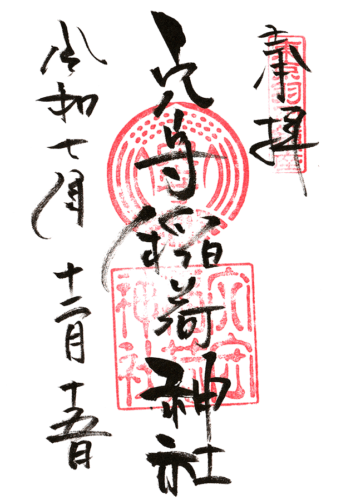 奉拝
穴守稲荷神社
令和七年 十二月 十五日
穴守
稲荷
神社